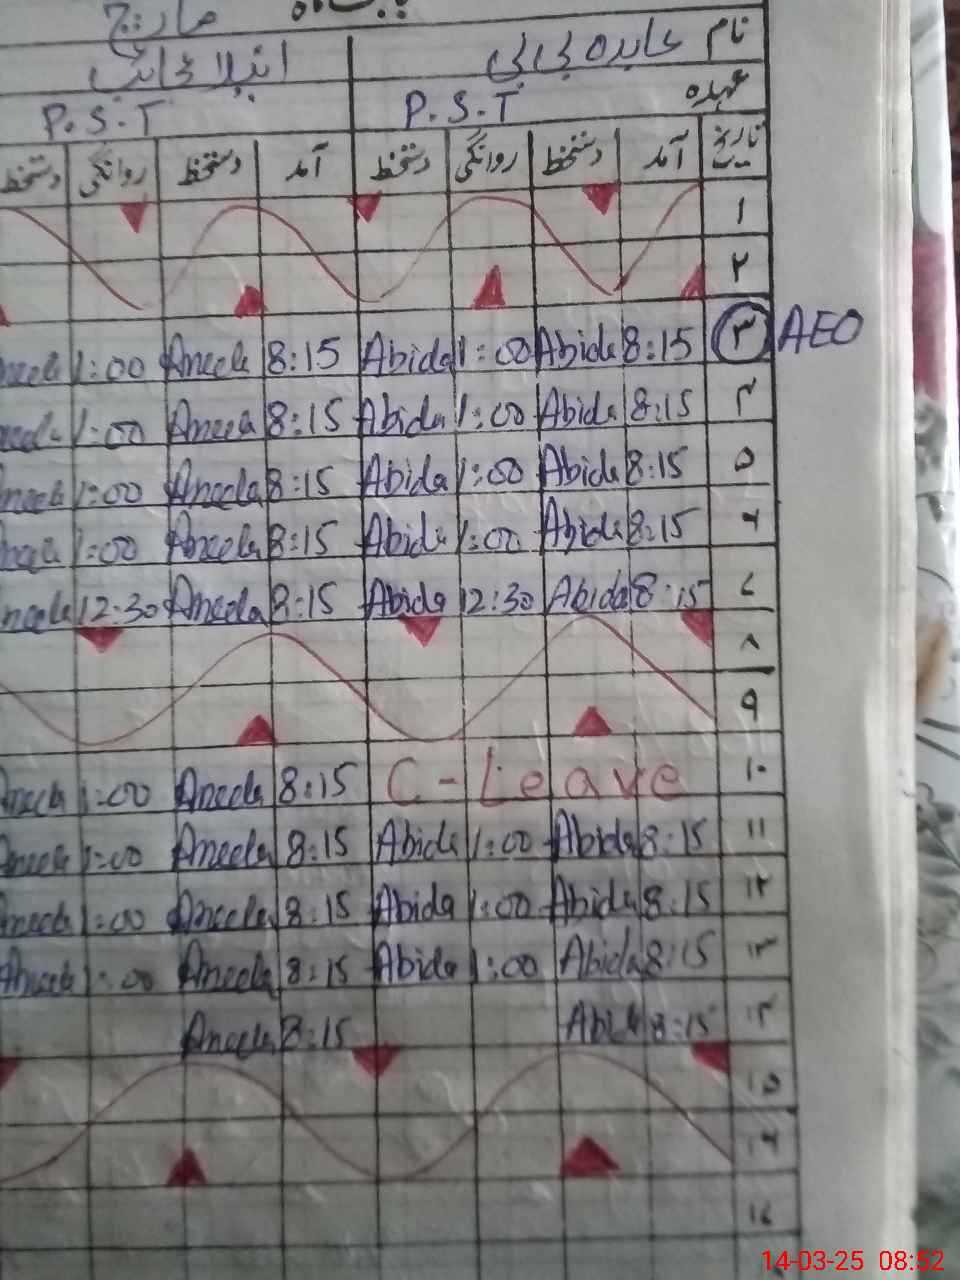 مارچ
نام عابدہ بی بی
عہدہ P.S.T P.S.T
تاریخ آمد دستخط روانگی دستخط آمد دستخط روانگی دستخط
۱
۲
AEO ۳ 8:15 Abida 1:00 Abida 8:15 Aneela 1:00
۴ 8:15 Abida 1:00 Abida 8:15 Aneela 1:00
۵ 8:15 Abida 1:00 Abida 8:15 Aneela 1:00
۶ 8:15 Abida 1:00 Abida 8:15 Aneela 1:00
۷ 8:15 Abida 12:30 Abida 8:15 Aneela 12:30
۸
۹
۱۰ C-Leave 8:15 Aneela 1:00
۱۱ 8:15 Abida 1:00 Abida 8:15 Aneela 1:00
۱۲ 8:15 Abida 1:00 Abida 8:15 Aneela 1:00
۱۳ 8:15 Abida 1:00 Abida 8:15 Aneela 1:00
۱۴ 8:15 Abida 8:15 Aneela
۱۵
۱۶
۱۷
14-03-25 08:52